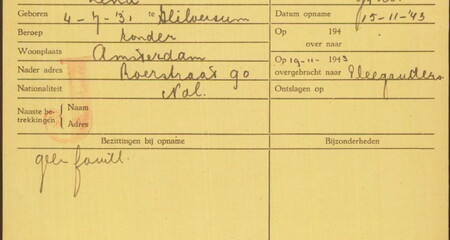 Geboren 4-7-'31 te Hilversum
Datum opname 15-11-'43
Beroep zonder
Op 194
over naar
Woonplaats Amsterdam
Op 19-11-1943
Nader adres Roerstraat 90
overgebracht naar
Nationaliteit Ned.
Ontslagen op
Naaste betrekkingen { Naam
Adres
Bezittingen bij opname
Bijzonderheden
geen famill.